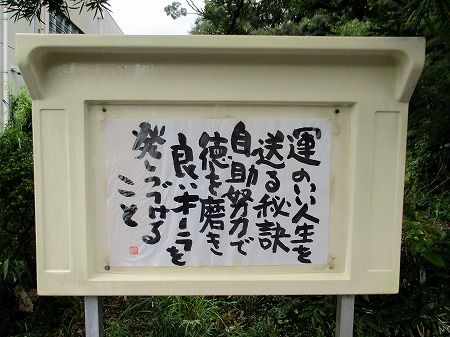 運のいい人生を
送る秘訣
自助努力で
徳を磨き
良いオーラを
発しつづける
こと